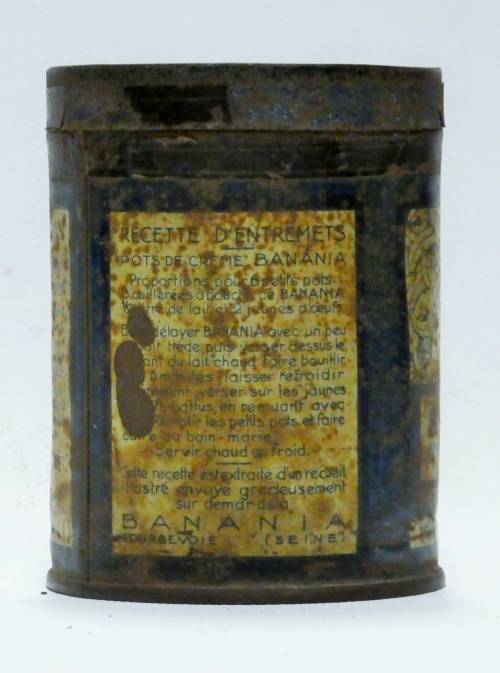 RECETTE D'ENTREMETS
POTS DE CRÈME BANANIA
Proportions pour 6 petits pots
cuillerées à bouche de BANANIA
litre de lait et 2 jaunes d'œufs.
délayer BANANIA avec un peu
lait tiède puis verser dessus le
du lait chaud, faire bouillir
minutes, laisser refroidir
verser sur les jaunes
battus, en remuant avec
Remplir les petits pots et faire
cuire au bain-marie.
Servir chaud ou froid.
Cette recette est extraite d'un recueil
illustré envoyé gracieusement
sur demande à
BANANIA
COURBEVOIE (SEINE)